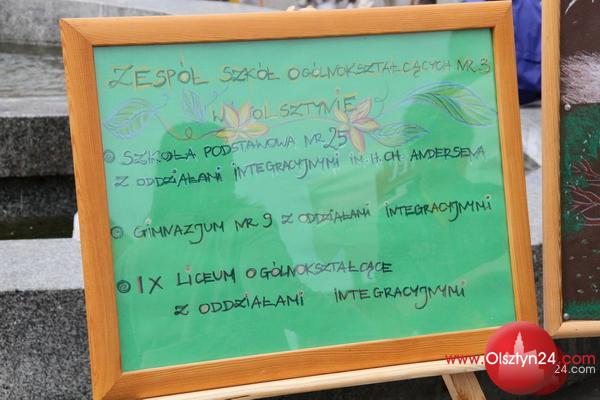 ZESPÓŁ SZKÓŁ OGÓLNOKSZTAŁCĄCYCH NR 3
W OLSZTYNIE
SZKOŁA PODSTAWOWA NR 25
Z ODDZIAŁAMI INTEGRACYJNYMI IM. H. CH. ANDERSENA
GIMNAZJUM NR 9 Z ODDZIAŁAMI INTEGRACYJNYMI
IX LICEUM OGÓLNOKSZTAŁCĄCE
Z ODDZIAŁAMI INTEGRACYJNYMI
www.Olsztyn24.com
24.com